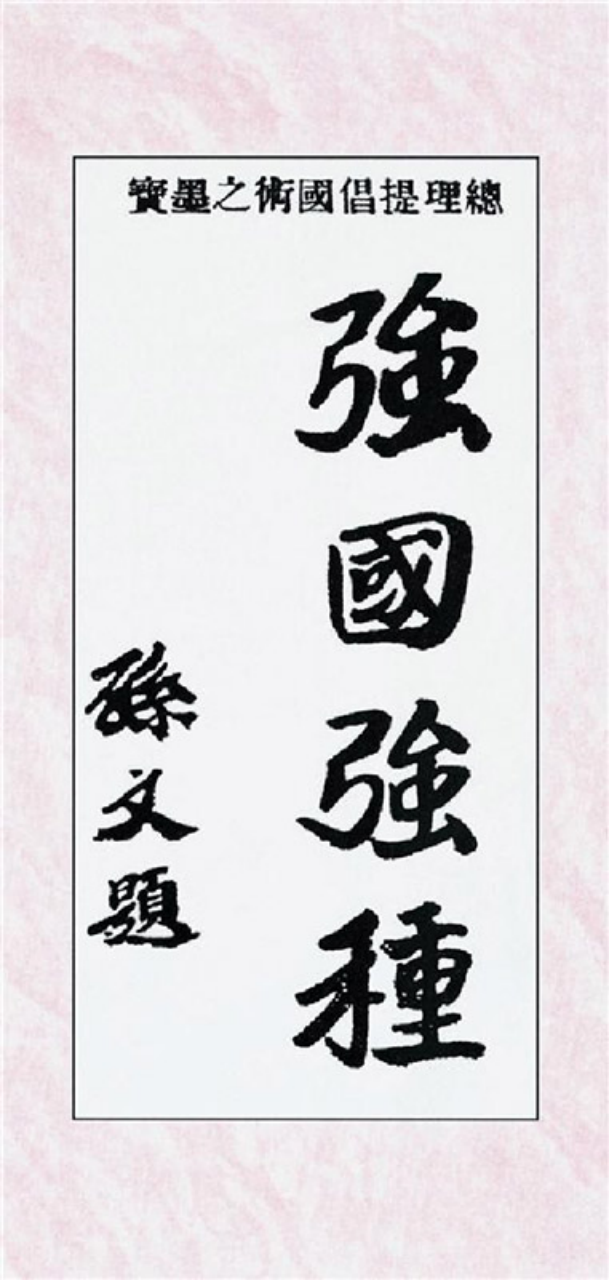 總理提倡國術之墨寶
強國強種
孫文題